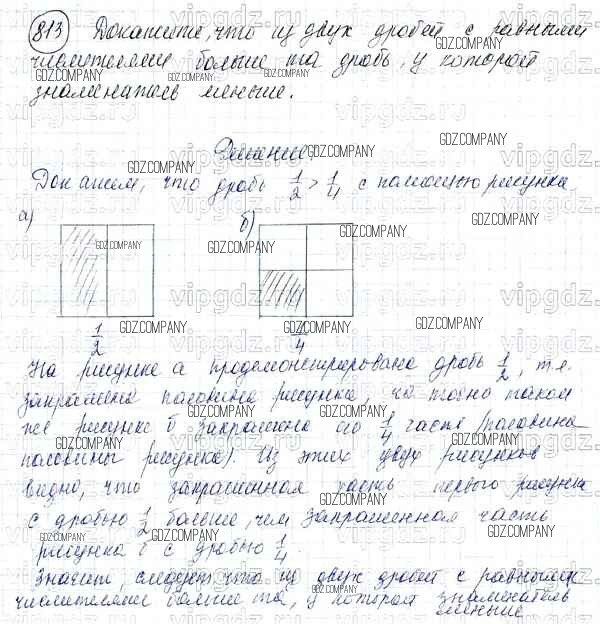 813 Докажите, что из двух дробей с равными
числителями больше та дробь, у которой
знаменатель меньше.
Решение.
Докажем, что дробь 1/2 > 1/4 с помощью рисунка.
а) б)
1/2 1/4
На рисунке а продемонстрирована дробь 1/2, т.е.
закрашена половина рисунка, на точно таком
же рисунке б закрашена по 1/4 часть (половина
половины рисунка). Из этих двух рисунков
видно, что закрашенная часть первого рисунка
с дробью 1/2 больше, чем закрашенная часть
рисунка б с дробью 1/4.
Значит, следует, что из двух дробей с равными
числителями больше та, у которой знаменатель
меньше
GDZ.COMPANY
vipgdz.ru